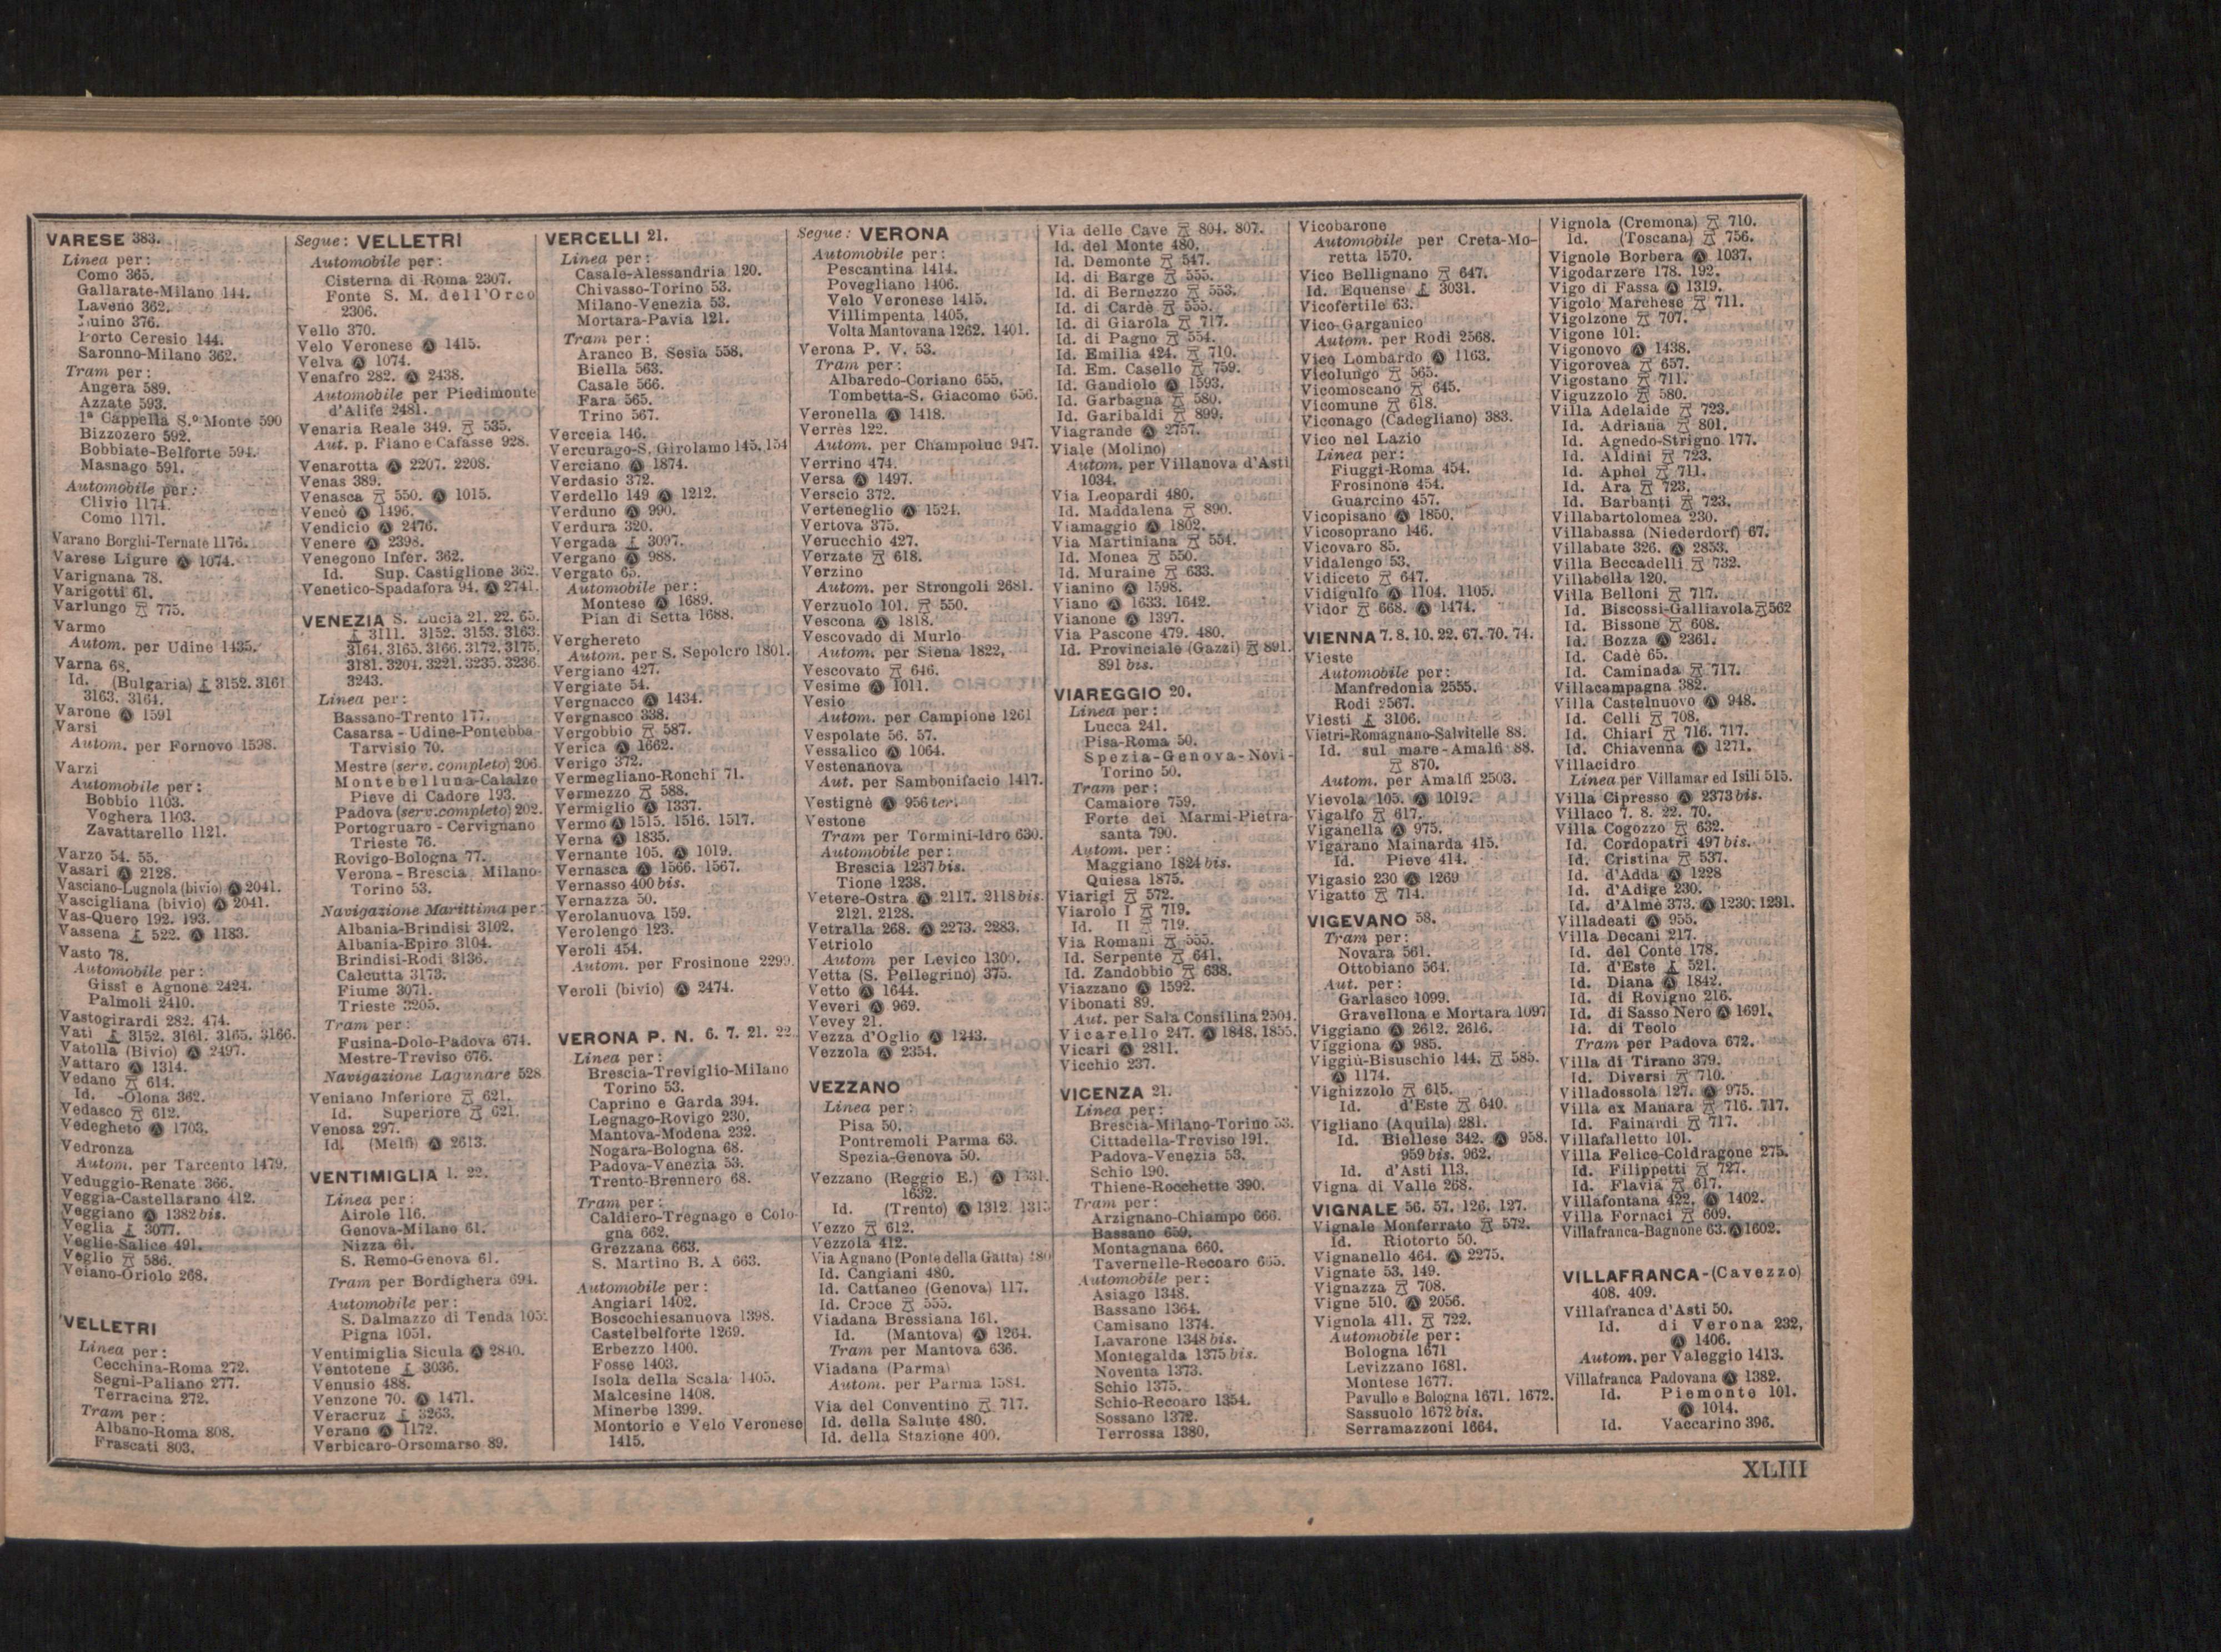 VARESE 383.
Linea per:
Como 365.
Gallarate-Milano 144.
Laveno 362.
Luino 376.
Porto Ceresio 144.
Saronno-Milano 362.
Tram per:
Angera 589.
Azzate 593.
1ª Cappella S.º Monte 590
Bizzozero 592.
Bobbiate-Belforte 594.
Masnago 591.
Automobile per:
Clivio 1174.
Como 1171.
Varano Borghi-Ternate 1176.
Varese Ligure Ⓐ 1074.
Varignana 78.
Varigotti 61.
Varlungo 775.
Varmo
Autom. per Udine 1435.
Varna 68.
Id. (Bulgaria) 3152. 3161
3163. 3164.
Varone Ⓐ 1591
Varsi
Autom. per Fornovo 1598.
Varzi
Automobile per:
Bobbio 1103.
Voghera 1103.
Zavattarello 1121.
Varzo 54. 55.
Vasari Ⓐ 2128.
Vasciano-Lugnola (bivio) Ⓐ 2041.
Vascigliana (bivio) Ⓐ 2041.
Vas-Quero 192. 193.
Vassena 522. Ⓐ 1183.
Vasto 78.
Automobile per:
Gissi e Agnone 2424.
Palmoli 2410.
Vastogirardi 282. 474.
Vati 3152. 3161. 3165. 3166.
Vatolla (Bivio) Ⓐ 2497.
Vattaro Ⓐ 1314.
Vedano 614.
Id. -Olona 362.
Vedasco 612.
Vedegheto Ⓐ 1703.
Vedronza
Autom. per Tarcento 1479.
Veduggio-Renate 366.
Veggia-Castellarano 412.
Veggiano Ⓐ 1382 bis.
Veglia 3077.
Veglie-Salice 491.
Veglio 586.
Veiano-Oriolo 268.
VELLETRI
Linea per:
Cecchina-Roma 272.
Segni-Paliano 277.
Terracina 272.
Tram per:
Albano-Roma 808.
Frascati 803.
Segue: VELLETRI
Automobile per:
Cisterna di Roma 2307.
Fonte S. M. dell'Orco
2306.
Vello 370.
Velo Veronese Ⓐ 1415.
Velva Ⓐ 1074.
Venafro 282. Ⓐ 2438.
Automobile per Piedimonte
d'Alife 2481.
Venaria Reale 349. 535.
Aut. p. Fiano e Cafasse 928.
Venarotta Ⓐ 2207. 2208.
Venas 389.
Venasca 550. Ⓐ 1015.
Vencò Ⓐ 1496.
Vendicio Ⓐ 2476.
Venere Ⓐ 2398.
Venegono Infer. 362.
Id. Sup. Castiglione 362.
Venetico-Spadafora 94. Ⓐ 2741.
VENEZIA S. Lucia 21. 22. 65.
3111. 3152. 3153. 3163.
3164. 3165. 3166. 3172. 3175.
3181. 3204. 3221. 3235. 3236.
3243.
Linea per:
Bassano-Trento 177.
Casarsa - Udine-Pontebba
Tarvisio 70.
Mestre (serv. completo) 206
Montebelluna-Calalzo
Pieve di Cadore 193.
Padova (serv. completo) 202.
Portogruaro - Cervignano
Trieste 76.
Rovigo-Bologna 77.
Verona - Brescia Milano-
Torino 53.
Navigazione Marittima per
Albania-Brindisi 3102.
Albania-Epiro 3104.
Brindisi-Rodi 3136.
Calcutta 3173.
Fiume 3071.
Trieste 3205.
Tram per:
Fusina-Dolo-Padova 674.
Mestre-Treviso 676.
Navigazione Lagunare 528
Veniano Inferiore 621.
Id. Superiore 621.
Venosa 297.
Id. (Melfi) Ⓐ 2613.
VENTIMIGLIA 1. 22.
Linea per:
Airole 116.
Genova-Milano 61.
Nizza 61.
S. Remo-Genova 61.
Tram per Bordighera 694.
Automobile per:
S. Dalmazzo di Tenda
Pigna 1051.
Ventimiglia Sicula Ⓐ 2840.
Ventotene 3036.
Venusio 488.
Venzone 70. Ⓐ 1471.
Veracruz 3263.
Verano Ⓐ 1172.
Verbicaro-Orsomarso 89.
VERCELLI 21.
Linea per:
Casale-Alessandria 120.
Chivasso-Torino 53.
Milano-Venezia 53.
Mortara-Pavia 121.
Tram per:
Aranco B. Sesia 558.
Biella 563.
Casale 566.
Fara 565.
Trino 567.
Verceia 146.
Vercurago-S. Girolamo 145. 154
Verciano Ⓐ 1874.
Verdasio 372.
Verdello 149 Ⓐ 1212.
Verduno Ⓐ 990.
Verdura 320.
Vergada 3097.
Vergano Ⓐ 988.
Vergato 65.
Automobile per:
Montese Ⓐ 1689.
Pian di Setta 1688.
Verghereto
Autom. per S. Sepolcro 1801.
Vergiano 427.
Vergiate 54.
Vergnacco Ⓐ 1434.
Vergnasco 338.
Vergobbio 587.
Verica Ⓐ 1662.
Verigo 372.
Vermegliano-Ronchi 71.
Vermezzo 588.
Vermiglio Ⓐ 1337.
Vermo Ⓐ 1515. 1516. 1517.
Verna Ⓐ 1835.
Vernante 105. Ⓐ 1019.
Vernasca Ⓐ 1566. 1567.
Vernasso 400 bis.
Vernazza 50.
Verolanuova 159.
Verolengo 123.
Veroli 454.
Autom. per Frosinone 2299.
Veroli (bivio) Ⓐ 2474.
VERONA P. N. 6. 7. 21. 22
Linea per:
Brescia-Treviglio-Milano
Torino 53.
Caprino e Garda 394.
Legnago-Rovigo 230.
Mantova-Modena 232.
Nogara-Bologna 68.
Padova-Venezia 53.
Trento-Brennero 68.
Tram per:
Caldiero-Tregnago e Colo-
gna 662.
Grezzana 663.
S. Martino B. A 663.
Automobile per:
Angiari 1402.
Boscochiesanuova 1398.
Castelbelforte 1269.
Erbezzo 1400.
Fosse 1403.
Isola della Scala 1405.
Malcesine 1408.
Minerbe 1399.
Montorio e Velo Veronese
1415.
Segue: VERONA
Automobile per:
Pescantina 1414.
Povegliano 1406.
Velo Veronese 1415.
Villimpenta 1405.
Volta Mantovana 1262. 1401.
Verona P. V. 53.
Tram per:
Albaredo-Coriano 655.
Tombetta-S. Giacomo 656.
Veronella Ⓐ 1418.
Verrès 122.
Autom. per Champoluc 947.
Verrino 474.
Versa Ⓐ 1497.
Verscio 372.
Verteneglio Ⓐ 1524.
Vertova 375.
Verucchio 427.
Verzate 618.
Verzino
Autom. per Strongoli 2681.
Verzuolo 101. 550.
Vescona Ⓐ 1818.
Vescovado di Murlo
Autom. per Siena 1822.
Vescovato 646.
Vesime Ⓐ 1011.
Vesio
Autom. per Campione 1261
Vespolate 56. 57.
Vessalico Ⓐ 1064.
Vestenanova
Aut. per Sambonifacio 1417.
Vestignè Ⓐ 956 ter.
Vestone
Tram per Tormini-Idro 630.
Automobile per:
Brescia 1237 bis.
Tione 1238.
Vetere-Ostra Ⓐ 2117. 2118 bis
2121. 2128.
Vetralla 268. Ⓐ 2273. 2283.
Vetriolo
Autom per Levico 1309.
Vetta (S. Pellegrino) 375.
Vetto Ⓐ 1644.
Veveri Ⓐ 969.
Vevey 21.
Vezza d'Oglio Ⓐ 1243.
Vezzola Ⓐ 2354.
VEZZANO
Linea per:
Pisa 50.
Pontremoli Parma 63.
Spezia-Genova 50.
Vezzano (Reggio E.) Ⓐ 1631.
1632.
Id. (Trento) Ⓐ 1312.
Vezzo 612.
Vezzola 412.
Via Agnano (Ponte della Gatta) 480
Id. Cangiani 480.
Id. Cattaneo (Genova) 117.
Id. Croce 555.
Viadana Bressiana 161.
Id. (Mantova) Ⓐ 1264.
Tram per Mantova 636.
Viadana (Parma)
Autom. per Parma 1584.
Via del Conventino 717.
Id. della Salute 480.
Id. della Stazione 400.
Via delle Cave 804. 807.
Id. del Monte 480.
Id. Demonte 547.
Id. di Barge 555.
Id. di Bernezzo 553.
Id. di Cardè 555.
Id. di Giarola 717.
Id. di Pagno 554.
Id. Emilia 424. 710.
Id. Em. Casello 759.
Id. Gandiolo Ⓐ 1593.
Id. Garbagna 580.
Id. Garibaldi 899.
Viagrande Ⓐ 2757.
Viale (Molino)
Autom. per Villanova d'Asti
1034.
Via Leopardi 480.
Id. Maddalena 890.
Viamaggio Ⓐ 1802.
Via Martiniana 554.
Id. Monea 550.
Id. Muraine 633.
Vianino Ⓐ 1598.
Viano Ⓐ 1633. 1642.
Vianone Ⓐ 1397.
Via Pascone 479. 480.
Id. Provinciale (Gazzi) 891.
891 bis.
VIAREGGIO 20.
Linea per:
Lucca 241.
Pisa-Roma 50.
Spezia-Genova-Novi-
Torino 50.
Tram per:
Camaiore 759.
Forte dei Marmi-Pietra-
santa 790.
Autom. per:
Maggiano 1824 bis.
Quiesa 1875.
Viarigi 572.
Viarolo I 719.
Id. II 719.
Via Romani 555.
Id. Serpente 641.
Id. Zandobbio 638.
Viazzano Ⓐ 1592.
Vibonati 89.
Aut. per Sala Consilina 2504.
Vicarello 247. Ⓐ 1848. 1855.
Vicari Ⓐ 2811.
Vicchio 237.
VICENZA 21.
Linea per:
Brescia-Milano-Torino 53.
Cittadella-Treviso 191.
Padova-Venezia 53.
Schio 190.
Thiene-Rocchette 390.
Tram per:
Arzignano-Chiampo 666.
Bassano 659.
Montagnana 660.
Tavernelle-Recoaro 665.
Automobile per:
Asiago 1348.
Bassano 1364.
Camisano 1374.
Lavarone 1348 bis.
Montegalda 1375 bis.
Noventa 1373.
Schio 1375.
Schio-Recoaro 1354.
Sossano 1372.
Terrossa 1380.
Vicobarone
Automobile per Creta-Mo-
retta 1570.
Vico Bellignano 647.
Id. Equense 3031.
Vicofertile 63.
Vico-Garganico
Autom. per Rodi 2568.
Vico Lombardo Ⓐ 1163.
Vicolungo 565.
Vicomoscano 645.
Vicomune 618.
Viconago (Cadegliano) 383.
Vico nel Lazio
Linea per:
Fiuggi-Roma 454.
Frosinone 454.
Guarcino 457.
Vicopisano Ⓐ 1850.
Vicosoprano 146.
Vicovaro 85.
Vidalengo 53.
Vidiceto 647.
Vidigulfo Ⓐ 1104. 1105.
Vidor 668. Ⓐ 1474.
VIENNA 7. 8. 10. 22. 67. 70. 74.
Vieste
Automobile per:
Manfredonia 2555.
Rodi 2567.
Viesti 3106.
Vietri-Romagnano-Salvitelle 88.
Id. sul mare-Amalfi 88.
870.
Autom. per Amalfi 2503.
Vievola 105. Ⓐ 1019.
Vigalfo 617.
Viganella Ⓐ 975.
Vigarano Mainarda 415.
Id. Pieve 414.
Vigasio 230 Ⓐ 1269
Vigatto 714.
VIGEVANO 58.
Tram per:
Novara 561.
Ottobiano 564.
Aut. per:
Garlasco 1099.
Gravellona e Mortara 1097
Viggiano Ⓐ 2612. 2616.
Viggiona Ⓐ 985.
Viggiù-Bisuschio 144. 585.
Ⓐ 1174.
Vighizzolo 615.
Id. d'Este 640.
Vigliano (Aquila) 281.
Id. Biellese 342. Ⓐ 958.
959 bis. 962.
Id. d'Asti 113.
Vigna di Valle 268.
VIGNALE 56. 57. 126. 127.
Vignale Monferrato 572.
Id. Riotorto 50.
Vignanello 464. Ⓐ 2275.
Vignate 53. 149.
Vignazza 708.
Vigne 510. Ⓐ 2056.
Vignola 411. 722.
Automobile per:
Bologna 1671
Levizzano 1681.
Montese 1677.
Pavullo e Bologna 1671. 1672.
Sassuolo 1672 bis.
Serramazzoni 1664.
Vignola (Cremona) 710.
Id. (Toscana) 756.
Vignole Borbera Ⓐ 1037.
Vigodarzere 178. 192.
Vigo di Fassa Ⓐ 1319.
Vigolo Marchese 711.
Vigolzone 707.
Vigone 101.
Vigonovo Ⓐ 1438.
Vigorovea 657.
Vigostano 711.
Viguzzolo 580.
Villa Adelaide 723.
Id. Adriana 801.
Id. Agnedo-Strigno 177.
Id. Aldini 723.
Id. Aphel 711.
Id. Ara 723.
Id. Barbanti 723.
Villabartolomea 230.
Villabassa (Niederdorf) 67.
Villabate 326. Ⓐ 2853.
Villa Beccadelli 732.
Villabella 120.
Villa Belloni 717.
Id. Biscossi-Galliavola 562
Id. Bissone 608.
Id. Bozza Ⓐ 2361.
Id. Cadè 65.
Id. Caminada 717.
Villacampagna 382.
Villa Castelnuovo Ⓐ 948.
Id. Celli 708.
Id. Chiari 716. 717.
Id. Chiavenna Ⓐ 1271.
Villacidro
Linea per Villamar ed Isili 515.
Villa Cipresso Ⓐ 2373 bis.
Villaco 7. 8. 22. 70.
Villa Cogozzo 632.
Id. Cordopatri 497 bis.
Id. Cristina 537.
Id. d'Adda Ⓐ 1228
Id. d'Adige 230.
Id. d'Almè 373. Ⓐ 1230. 1231.
Villadeati Ⓐ 955.
Villa Decani 217.
Id. del Conte 178.
Id. d'Este 521.
Id. Diana Ⓐ 1842.
Id. di Rovigno 216.
Id. di Sasso Nero Ⓐ 1691.
Id. di Teolo
Tram per Padova 672.
Villa di Tirano 379.
Id. Diversi 710.
Villadossola 127. Ⓐ 975.
Villa ex Manara 716. 717.
Id. Fainardi 717.
Villafalletto 101.
Villa Felice-Coldragone 275.
Id. Filippetti 727.
Id. Flavia 617.
Villafontana 422. Ⓐ 1402.
Villa Fornaci 609.
Villafranca-Bagnone 63. Ⓐ 1602.
VILLAFRANCA-(Cavezzo)
408. 409.
Villafranca d'Asti 50.
Id. di Verona 232,
Ⓐ 1406.
Autom. per Valeggio 1413.
Villafranca Padovana Ⓐ 1382.
Id. Piemonte 101.
Ⓐ 1014.
Id. Vaccarino 396.
XLIII